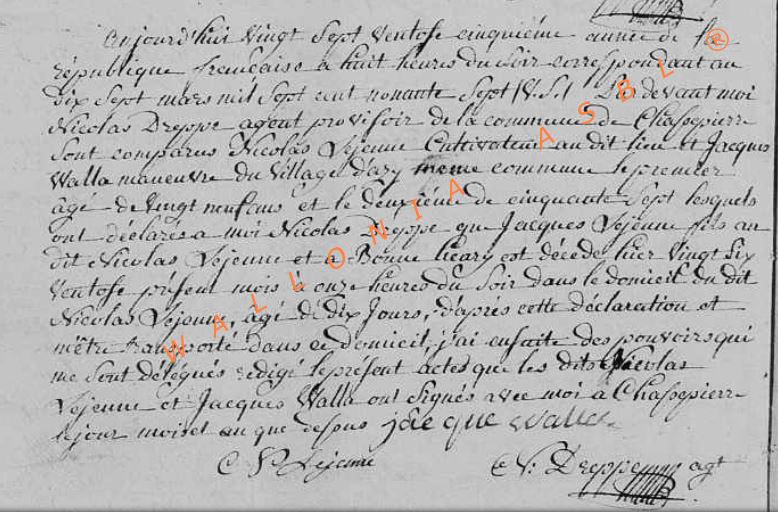 aujourd'hui vingt Sept ventose cinquiéme année de la
république francaise a huit heures du soir correspondant au
dix Sept mars mil Sept cent nonante Sept (V.S.) Pardevant moi
Nicolas Dreppe agent provisoir de la commune de Chassepierre
Sont comparus Nicolas Lejeune Cultivateur au dit lieu et Jacques
Walla maneuvre du village d'azy meme commune le premier
âgé de vingt neuf ans et le deuxiéme de cinquante Sept lesquels
ont déclarés a moi Nicolas Dreppe que Jacques Lejeune fils au
dit Nicolas Lejeune et a Bonne lieary est décédé hier vingt six
ventose présent mois à onze heures du Soir dans le domicil du dit
Nicolas Lejeune, âgé de dix Jours, d'après cette déclaration et
m'être transporté dans ce domicil, j'ai ensuite des pouvoirs qui
me sont délégués redigé le présent actes que les dits Nicolas
Lejeune et Jacques Walla ont Signés avec moi a Chassepierre
le jour mois et an que dessus jacque walla
Lejeune Dreppe agt
WALLONIA ASBL ®